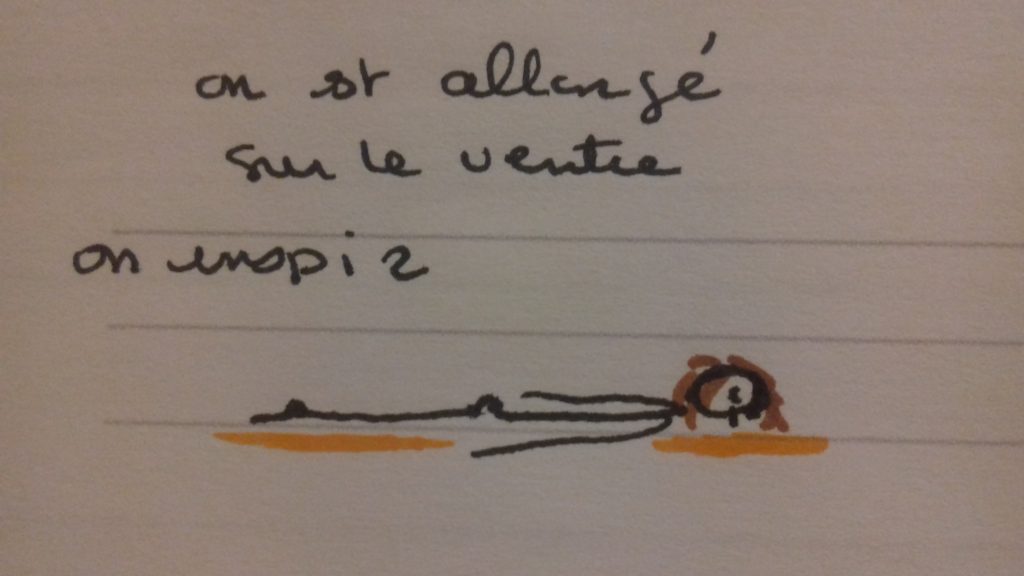 on est allongé
sur le ventre
on inspire